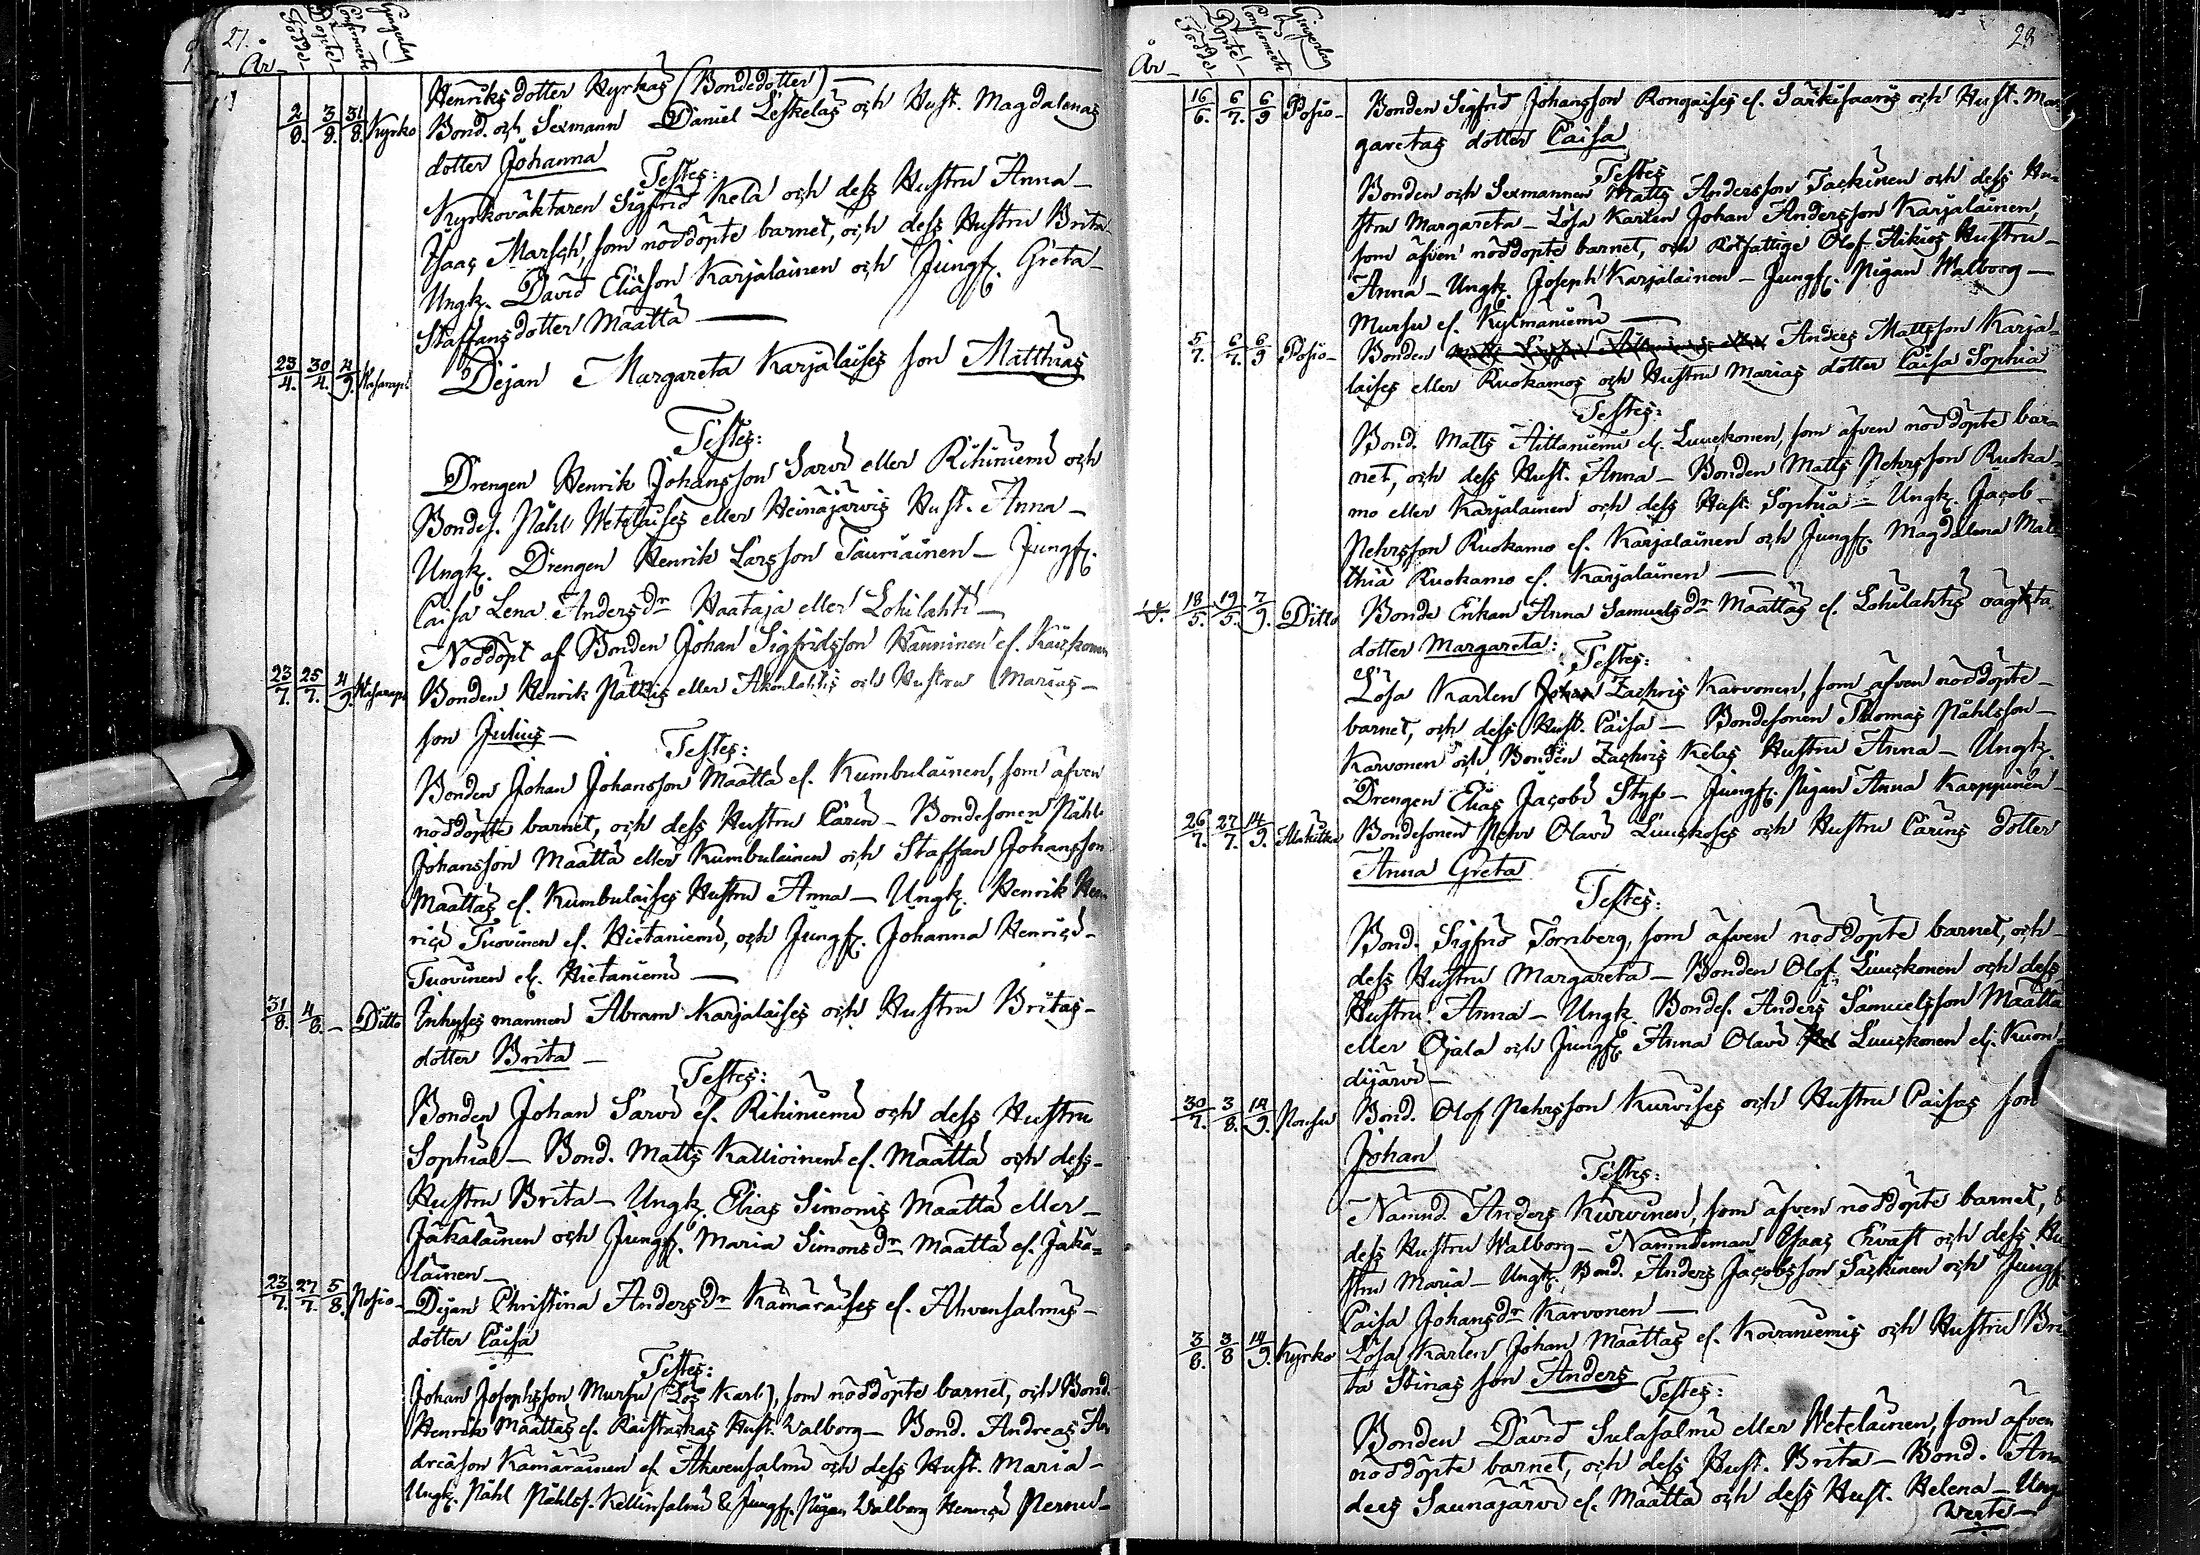 27.
År
Födde
Döpte
Confirmerte
Gingerlag
Henriks dotter Hyrkäs (Bondedotter) —
2/8. 3/8. 31/8. Kyrko Bond. och Sexmann Daniel Leskeläs och Hust. Magdalenas
dotter Johanna
Testes:
Kyrkoväktaren Sigfrid Kela och dess Hustru Anna —
Isaac Marsch, som nöddöpte barnet, och dess Hustru Brita
Ungk. David Eliasson Karjalainen och Jungf. Greta —
Staffansdotter Määttä —
23/4. 30/4. 4/9. Dejan Margareta Karjalaises son Matthias
Testes:
Drengen Henrik Johansson Sarvi eller Riihiniemi och
Bondes. Påhl Wetelaises eller Heinäjärvis Hust. Anna —
Ungk. Drengen Henrik Larsson Tauriainen — Jungf.
Caisa Lena Andersdr Haataja eller Lohilahti —
Nöddöpt af Bonden Johan Sigfridsson Hänninen el.
23/7. 25/7. 4/9. Bonden Henrik eller Akonlahtis och Hustru Marias —
son Julius —
Testes:
Bonden Johan Johansson Määttä el. Kumbulainen, som äfven
nöddöpte barnet, och dess Hustru Carin — Bondesonen Påhl
Johansson Määttä eller Kumbulainen och Staffan Johansson
Määttäs el. Kumbulaises Hustru Anna — Ungk. Henrik Hen
rici Tuovinen el. Hietaniemi, och Jungf. Johanna Henrici —
Tuovinen el. Hietaniemi —
31/8. 4/8. — Ditto Inhyses mannen Abram Karjalaises och Hustru Britas —
dotter Brita —
Testes:
Bonden Johan Sarvi el. Riihiniemi och dess Hustru
Sophia — Bond. Matts Kallioinen el. Määttä och dess —
Hustru Brita — Ungk. Elias Simonis Määttä eller —
Jäkäläinen och Jungf. Maria Simonsdr Määttä el. Jäkä=
läinen —
23/7. 27/7. 5/8. Posio — Dejan Christina Andersdr Kämäräises el. Ahvensalmis —
dotter Caisa
Testes:
Johan Josephsson Mursu (Lös Karl), som nöddöpte barnet, och Bond.
Henrik Määttäs el. Hust. Walborg — Bond. Andreas An
dreäson Kämäräinen el. Ahvensalmi och dess Hust. Maria —
Ungk. Påhl Påhls. Kellinsalmi & Jungf. Pigan Walborg Henrici Pernu —
28
År
Födde
Döpte
Confirmerte
Gingerlag
16/6. 6/7. 6/9 Posio — Bonden Sigfrid Johansson Rongaises el. Särkisaaris och Hust. Mar
garetas dotter Caisa
Testes
Bonden och Sexmannen Matts Andersson Taskinen och dess Hu=
stru Margareta — Lösa Karlen Johan Andersson Karjalainen,
som äfven nöddöpte barnet, och Rotfattige Olof Aikios Hustru —
Anna — Ungk. Joseph Karjalainen — Jungf. Pigan Walborg —
Mursu el. Kylmäniemi —
5/7. 6/7. 6/9 Posio — Bonden Anders Mattsson Karja=
laises eller Ruokamos och Hustru Marias dotter Caisa Sophia
Testes:
Bond. Matts Aittaniemi el. Luuskonen, som äfven nöddöpte bar=
net, och dess Hust. Anna — Bonden Matts Pehrsson Ruoka=
mo eller Karjalainen och dess Hust. Sophia — Ungk. Jacob —
Pehrsson Ruokamo el. Karjalainen och Jungf. Magdalena Mat
thiä Ruokamo el. Karjalainen —
18/5. 19/5. 7/9. Ditto Bonde Enkan Anna Samuelsdr Määttäs el. Lohilahtis oägta
dotter Margareta:
Testes:
Lösa Karlen Johan Zachris Karvonen, som äfven nöddöpte —
barnet, och dess Hust. Caisa — Bondesonen Thomas Påhlsson —
Karvonen och Bonden Zachris Kelas Hustru Anna — Ungk.
Drengen Elias Jacobi Styf — Jungf. Pigan Anna Karppinen —
26/7. 27/7. 14/9. Bondesonen Pehr Olavi Luuskoses och Hustru Carins dotter
Anna Greta
Testes:
Bond. Sigfrid Tornberg, som äfven nöddöpte barnet, och —
dess Hustru Margareta — Bonden Olof Luuskonen och dess
Hustru Anna — Ungk. Bondes. Anders Samuelsson Määttä
eller Ojala och Jungf. Anna Olavi Luuskonen el. Kuon=
dijärvi —
30/7. 3/8. 14/9. Bond. Olof Pehrsson Kurvises och Hustru Caisas son
Johan
Testes:
Nämnd. Anders Kurvinen, som äfven nöddöpte barnet, &
dess Hustru Walborg — Nämndeman Isaac Chrast och dess Hu
stru Maria — Ungk. Bond. Anders Jacobsson Taskinen och Jungf.
Caisa Johansdr Karvonen —
3/8. 3/8 14/9. Kyrko Lösa Karlen Johan Määttäs el. Kovaniemis och Hustru Bri
ta Stinas son Anders
Testes:
Bonden David Sulasalmi eller Wetelainen, som äfven
nöddöpte barnet, och dess Hust. Brita — Bond. An
ders Saunajärvi el. Määttä och dess Hust. Helena — Ung
werte —